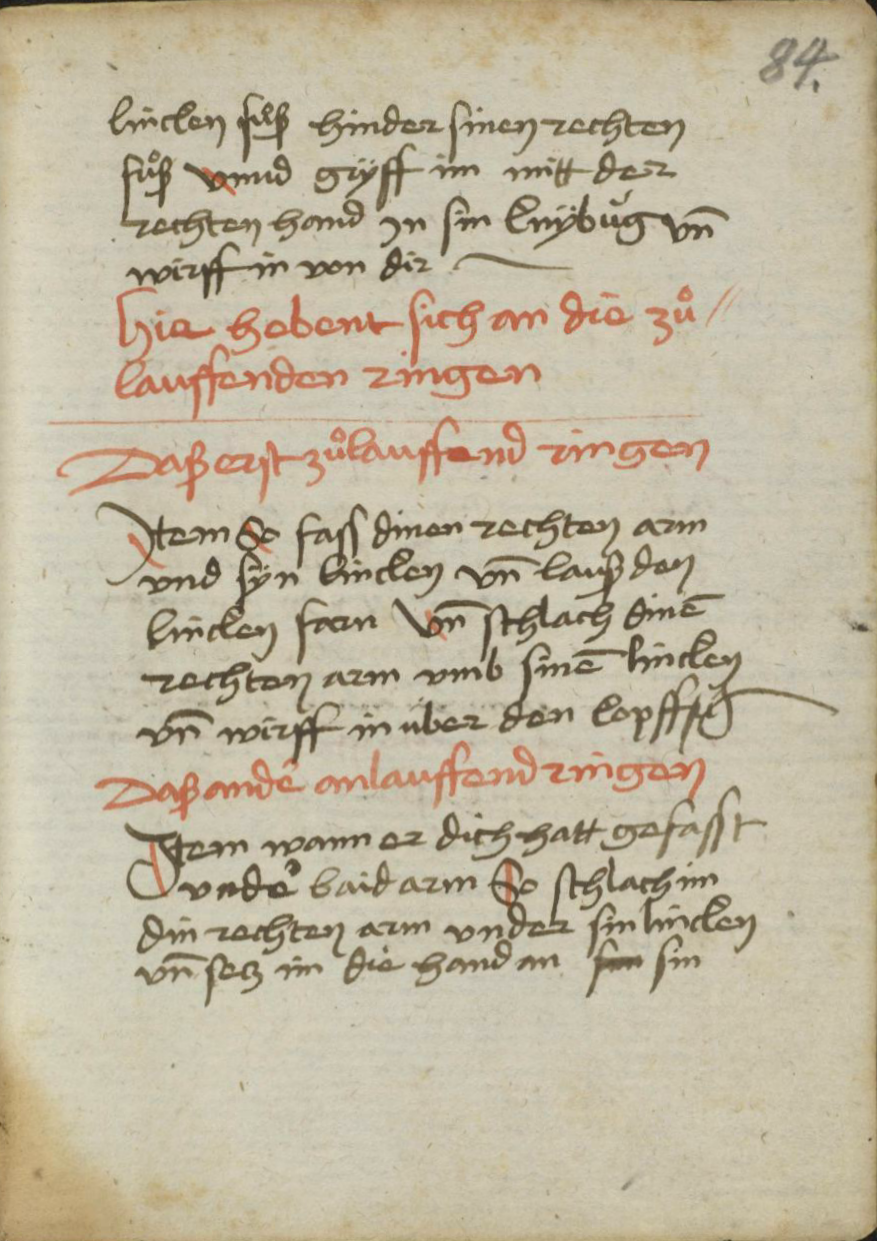 84.
lincken fůß hinder sinen rechten
fůß vnnd gryff im mitt der
rechten hand Jn sin knÿbug vn̄
wirff in von dir
Hie hebent sich an die zů //
lauffenden ringen
Daß erst zůlauffend ringen
Jtem So fass dinen rechten arm
vnd syn lincken vn̄ lauß den
lincken farn Vn̄ schlach dinē
rechten arm vmb sinē lincken
vn̄ wirff in uber den kopff
Daß andē anlauffend ringen
Jtem wann er dich hatt gefasst
vnder baid arm So schlach im
din rechten arm vnder sin lincken
vn̄ secz im die hand an sin